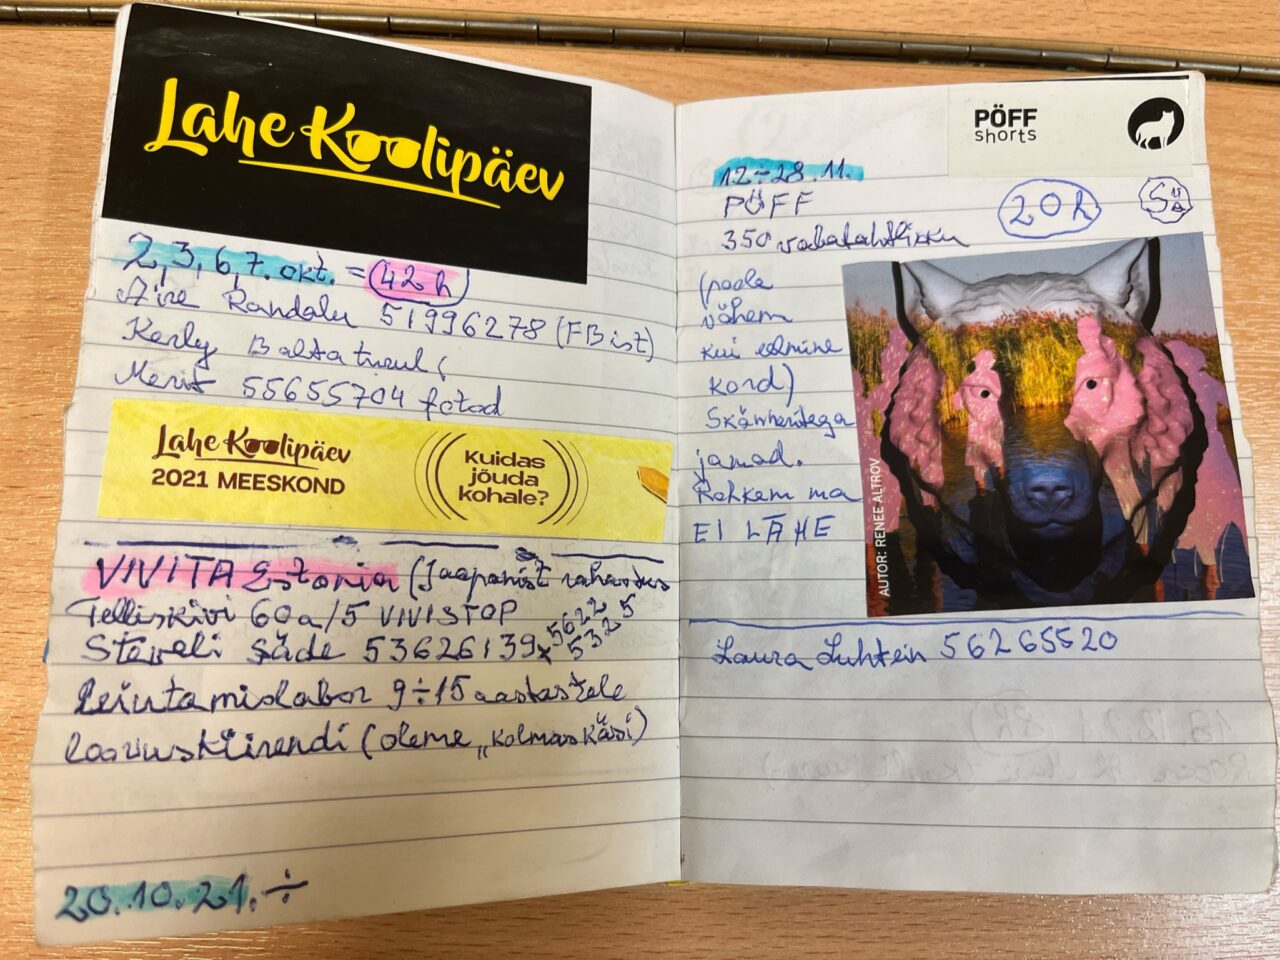 Lahe Koolipäev
2, 3, 6, 7. okt. = 42h
Aire Randalu 51996278 (FBist)
Kerly Baltatreul,
Merit 55655704 fotod
Lahe Koolipäev
2021 MEESKOND
Kuidas
jõuda
kohale?
VIVITA Estonia (Jaapanist rahastus
Telliskivi 60a/5 VIVISTOP
Steveli Säde 53626139 x 5622
5325
leiutamislabor 9÷15 aastastele
loovuskiirendi (oleme „kolmas käsi)
20.10.21. ÷
PÖFF
shorts
12÷28.11.
PÖFF
20h
350 vabatahtlikku
(poole
vähem
kui eelmine
kord)
Skänneritega
jamad.
Rohkem ma
EI LÄHE
AUTOR: RENEE ALTROV
Laura Luhtein 56265520